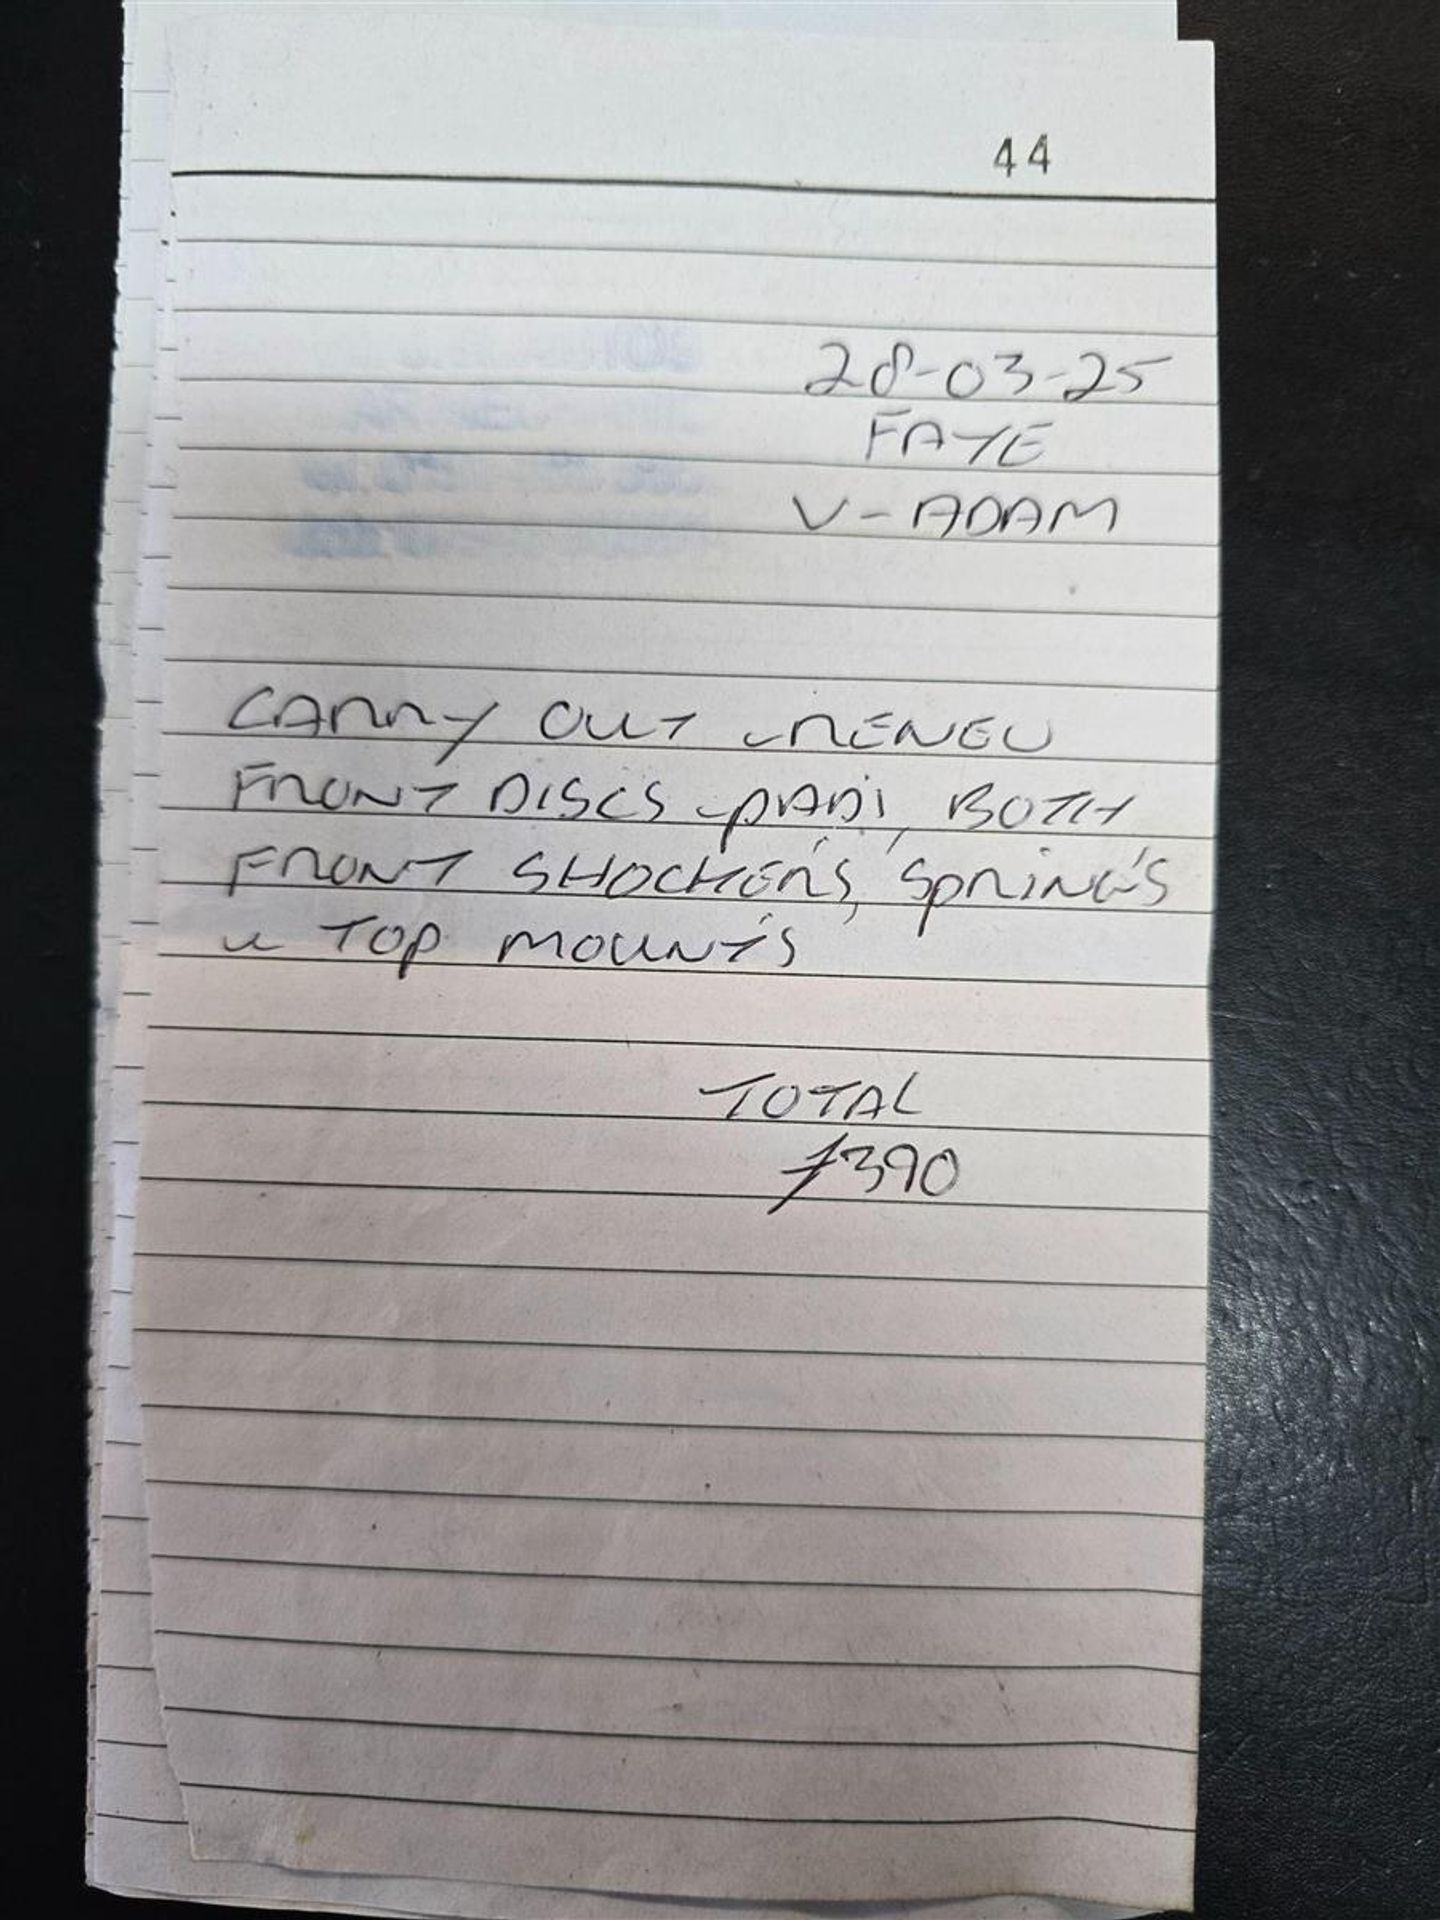 44
28-03-25
FAYE
V-ADAM
CARRY OUT - RENEW
FRONT DISCS - PADS, BOTH
FRONT SHOCKER'S, SPRING'S
& TOP MOUNT'S
TOTAL
£390